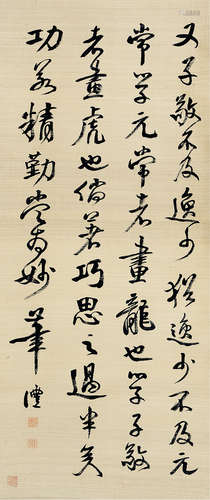 又子敬不及逸少猶逸少不及元
常學元常者畫龍也學子敬
者畫虎也倘著巧思思之過半矣
功若精勤당為妙
筆澧